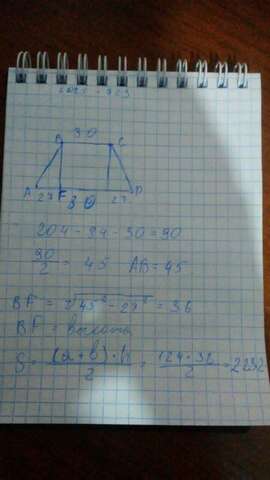 30
B C
A 27 F 30 27 D
204 - 94 - 30 = 90
90/2 = 45 AB = 45
BF = √45² - 27² = 36
BF = высоть
S = (a + b) · h / 2 = 124 · 36 / 2 = 2232